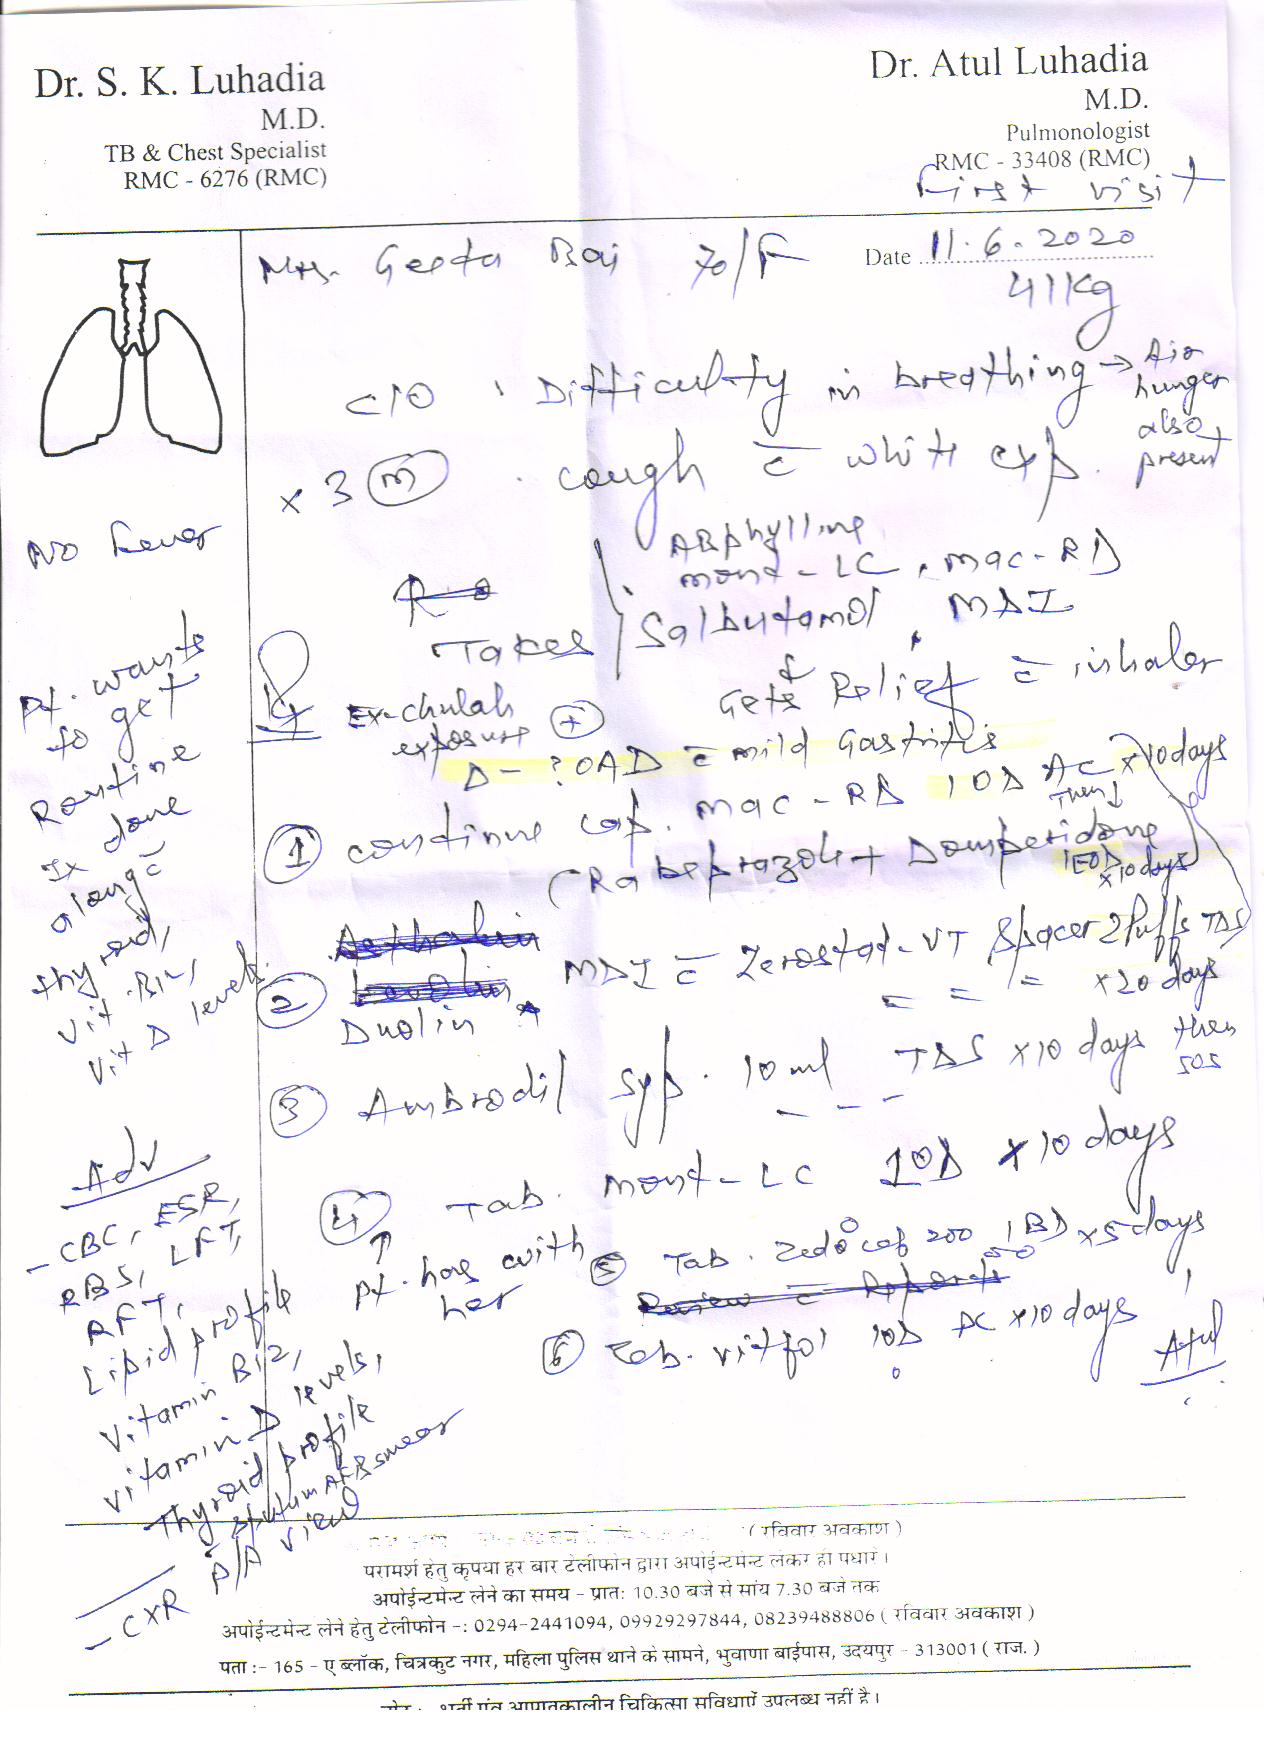 Dr. S. K. Luhadia
M.D.
TB & Chest Specialist
RMC - 6276 (RMC)
Dr. Atul Luhadia
M.D.
Pulmonologist
RMC - 33408 (RMC)
First visit
Mrs. Geeta Bai 70/F
Date 11.6.2020
41 Kg
C/O . Difficulty in breathing → Air
hunger
also
present
x 3 (m) . cough c̄ white exp.
No fever
ABphylline
mont-LC, mac-RD
Takes Salbutamol, MDI
Gets Relief c̄ inhaler
Ex-chulah
exposure (+)
D - ? OAD c̄ mild Gastritis
Pt. wants
to get
Routine
Ix done
along c̄
thyroid,
vit. B12,
vit D levels.
(1) continue cap. mac-RD 1 OD AC x 10 days
Then ↓
(Rabeprazole + Domperidone
1 EOD
x 10 days
(2) Duolin MDI c̄ Zerostat-VT Spacer 2 Puffs TDS
x 20 days
(3) Ambrodil syp. 10 ml TDS x 10 days then
SOS
(4) Tab. mont-LC 1 OD x 10 days
↑
Pt. has with
her
(5) Tab. Zedocef 200 1 BD x 5 days
Review c̄ Reports
(6) Tab. vitfol 1 OD AC x 10 days
Atul
Adv
- CBC, ESR,
RBS, LFT,
RFT,
Lipid profile
Vitamin B12,
vitamin D levels,
Thyroid profile
sputum AFB smear
- CXR P/A view
( रविवार अवकाश )
परामर्श हेतु कृपया हर बार टेलीफोन द्वारा अपोईन्टमेन्ट लेकर ही पधारें।
अपोईन्टमेन्ट लेने का समय - प्रातः 10.30 बजे से सांय 7.30 बजे तक
अपोईन्टमेन्ट लेने हेतु टेलीफोन -: 0294-2441094, 09929297844, 08239488806 ( रविवार अवकाश )
पता :- 165 - ए ब्लॉक, चित्रकुट नगर, महिला पुलिस थाने के सामने, भुवाणा बाईपास, उदयपुर - 313001 ( राज. )
नोट : भर्ती एंव आपातकालीन चिकित्सा सुविधाऐं उपलब्ध नहीं है।